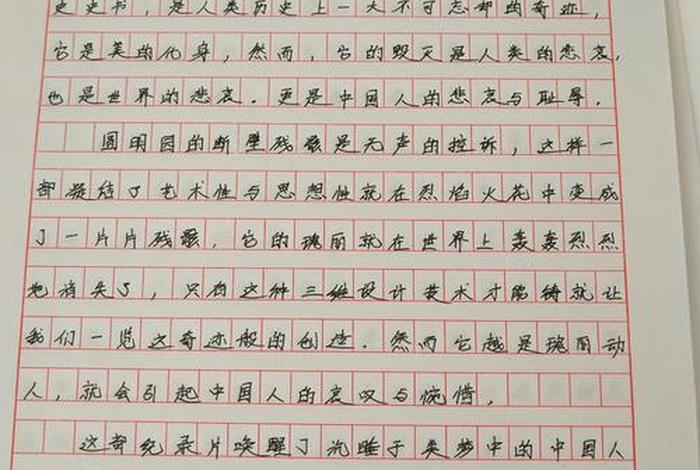 史史书，是人类历史上一大不可忘却的奇迹，
它是美的化身，然而，它的毁灭是人类的悲哀，
也是世界的悲哀。更是中国人的悲哀与耻辱。
圆明园的断壁残骸是无声的控诉，这样一
部凝结了艺术性与思想性就在烈焰火花中变成
了一片片残骸，它的瑰丽就在世界上轰轰烈烈
地消失了，只有这种三维设计技术才能铸就让
我们一览这奇迹般的创造。然而它越是瑰丽动
人，就会引起中国人的哀叹与惋惜，
这部纪录片唤醒了沉睡于美梦中的中国人